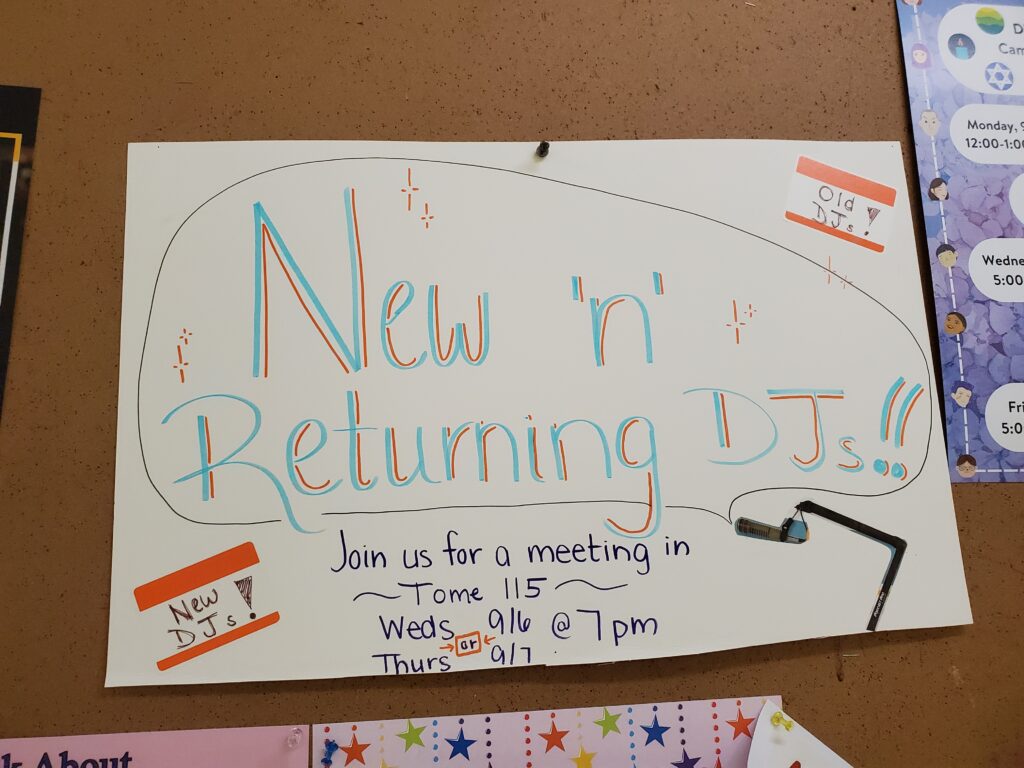 New 'n'
Returning DJs!!
Old
DJs!
New
DJs!
Join us for a meeting in
~ Tome 115 ~
Weds 9/6 @ 7pm
or
Thurs 9/7
Monday, 9
12:00-1:00
Wedne
5:00
Fri
5:0
D
Cam
k About